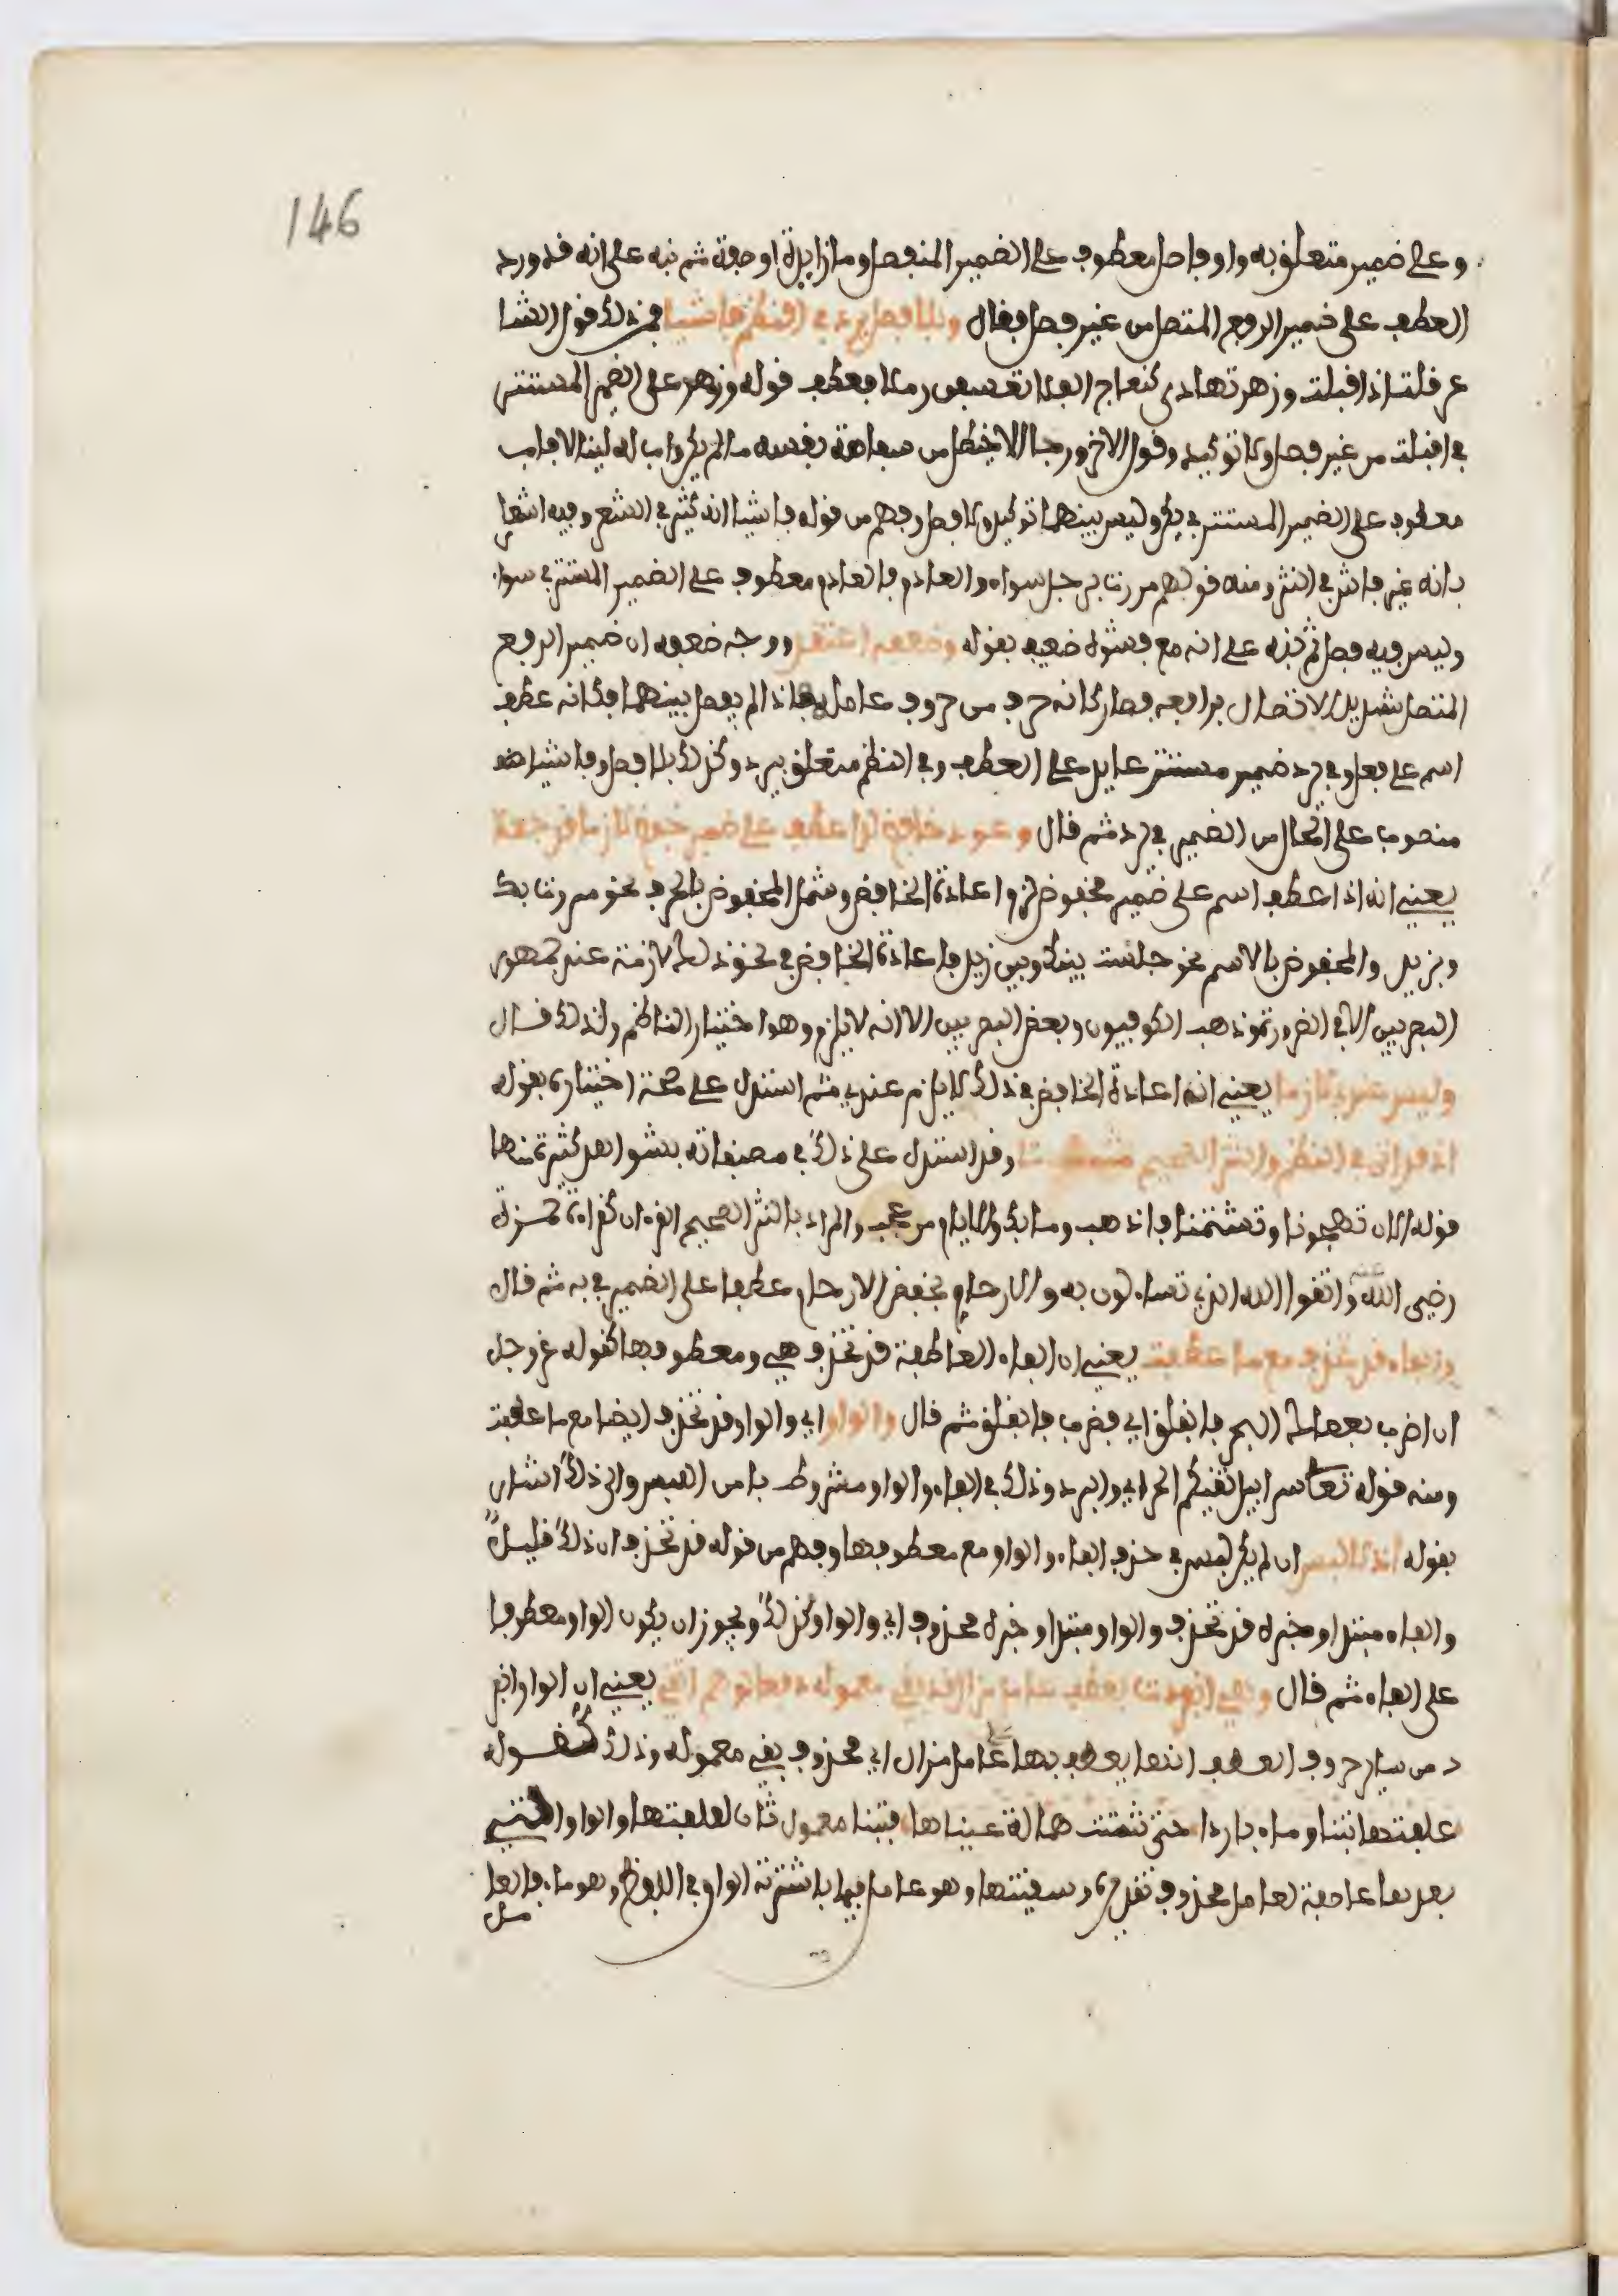 146
وعلى ضمير متعلق به او فاصل معطوف على الضمير المنفصل وما زايدة او صفة ثم نبه على انه قد ورد
العطف على ضمير الرفع المتصل من غير فصل فقال وبلا فصل يرد في النظم فاشيا فمن ذلك قول الشا
عر قلت اذ اقبلت وزهر تهادى كنعاج الفلا تعسفن رملا فعطف قوله وزهر على الضمير المستتر
في اقبلت من غير فصل ولا توكيد وقول الاخر ورجا الاخيطل من سفاهة نفسه ما لم يكن واب له لينالا فاب
معطوف على الضمير المستتر في يكن وليس بينهما توكيد ولا فصل وفهم من قوله فاشيا انه كثير في الشعر وفيه اشعا
بانه غير فاش في النثر ومنه قولهم مررت برجل سواء والعدم فالعدم معطوف على الضمير المستتر في سواء
وليس فيه فصل ثم نبه على انه مع فشوه ضعيف بقوله وضعفه اعتقد ووجه ضعفه ان ضمير الرفع
المتصل شديد الاتصال برافعه فصار كانه حرف من حروف عامله فاذا لم يفصل بينهما فكانه عطف
اسم على فعل وفي يرد ضمير مستتر عايد على العطف وفي النظم متعلق بيرد وكذلك بلا فصل وفاشيا
منصوب على الحال من الضمير في يرد ثم قال وعود خافض لدا عطف على ضمير خفض لازما قد جعلا
يعني انه اذا عطف اسم على ضمير مخفوض لزم اعادة الخافض وشمل المخفوض بالحرف نحو مررت بك
وبزيد والمخفوض بالاسم نحو جلست بينك وبين زيد فاعادة الخافض في نحو ذلك لازمة عند جمهور
البصريين الا في الضرورة وذهب الكوفيون وبعض البصريين الا انه لا يلزم وهو اختيار الناظم ولذلك قال
وليس عندي لازما يعني ان اعادة الخافض في ذلك لا يلزم عندي ثم استدل على صحة اختياره بقوله
اذ قد اتى في النظم والنثر الصحيح مثبتا وقد استدل على ذلك في مصنفاته بشواهد كثيرة منها
قوله الان تهجونا وتشتمنا فاذهب وما بك والايام من عجب والمراد بالنثر الصحيح القران كقراءة حمزة
رضي الله عنه واتقوا الله الذي تساءلون به والارحام بخفض الارحام عطفا على الضمير في به ثم قال
والفاء قد تحذف مع ما عطفت يعني ان الفاء العاطفة قد تحذف هي ومعطوفها كقوله عز وجل
ان اضرب بعصاك البحر فانفلق اي فضرب فانفلق ثم قال والواو اي والواو قد تحذف ايضا مع ما عطفت
ومنه قوله تعالى سرابيل تقيكم الحر اي والبرد وذلك في الفاء والواو مشروط بامن اللبس والى ذلك اشار
بقوله اذ لا لبس ان لم يكن لبس في حذف الفاء والواو مع معطوفها وفهم من قوله قد تحذف ان ذلك قليل
والفاء مبتدا وخبره قد تحذف والواو مبتدا وخبره محذوف اي والواو كذلك ويجوز ان يكون الواو معطوفا
على الفاء ثم قال وهي انفردت بعطف عامل مزال قد بقي معموله دفعا لوهم اتقي يعني ان الواو انفر
د من ساير حروف العطف انها يعطف بها عامل مزال اي محذوف بقي معموله وذلك كقوله
علفتها تبنا وماء باردا حتى شتت همالة عيناها فتبنا معمول ثان لعلفتها والواو التي
بعدها عاطفة لعامل محذوف تقديره وسقيتها وهو عامل فيما باشرته الواو في اللفظ وهو ماء فالعا
مل